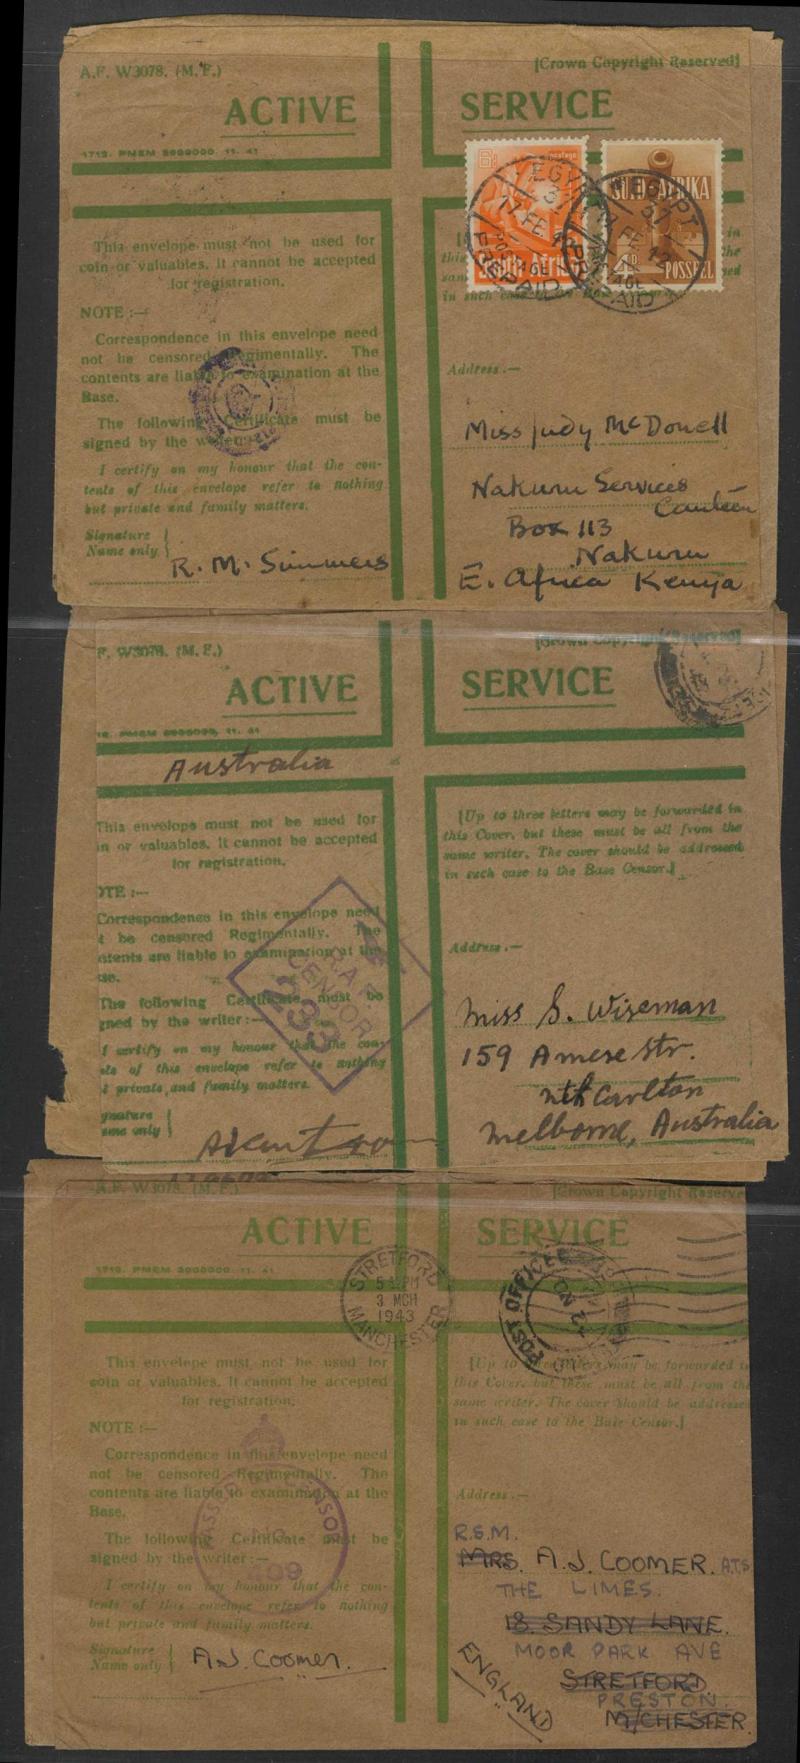 A.F. W3078. (M.F.)
[Crown Copyright Reserved]
ACTIVE SERVICE
1713. PMEM 5000000. 11. 41
EGYPT
17 FE
POSTAGE
PREPAID
South Africa
EGYPT
57
FE 42
PREPAID
SUID-AFRIKA
4D.
POSSEEL
This envelope must not be used for
coin or valuables. It cannot be accepted
for registration.
NOTE :—
Correspondence in this envelope need
not be censored Regimentally. The
contents are liable to examination at the
Base.
The following Certificate must be
signed by the writer:—
I certify on my honour that the con-
tents of this envelope refer to nothing
but private and family matters.
Signature
Name only
R. M. Simmers
in such case to the Base Censor.]
Address.—
Miss Judy McDonell
Nakuru Services
Canteen
Box 113
Nakuru
E. Africa Kenya
F. W3078. (M.F.)
[Crown Copyright Reserved]
ACTIVE SERVICE
Australia
This envelope must not be used for
in or valuables. It cannot be accepted
for registration.
OTE :—
Correspondence in this envelope need
t be censored Regimentally. The
ntents are liable to examination at the
se.
The following Certificate must be
gned by the writer:—
I certify on my honour that the con-
ts of this envelope refer to nothing
t private and family matters.
gnature
ame only
R.A.F.
CENSOR
233
[Up to three letters may be forwarded in
this Cover, but these must be all from the
same writer. The cover should be addressed
in such case to the Base Censor.]
Address.—
Miss S. Wiseman
159 Amese Str.
Nth Carlton
Melborne, Australia
A.F. W3078. (M.F.)
[Crown Copyright Reserve
ACTIVE SERVICE
1713. PMEM 5000000. 11. 41
STRETFORD
PM
3 MCH
1943
MANCHESTER
POST OFFICE
This envelope must not be used for
coin or valuables. It cannot be accepted
for registration.
NOTE :—
Correspondence in this envelope need
not be censored Regimentally. The
contents are liable to examination at the
Base.
The following Certificate must be
signed by the writer:—
I certify on my honour that the con-
tents of this envelope refer to nothing
but private and family matters.
Signature
Name only
A.J. Coomer.
PASSED BY CENSOR
NO.
409
[Up to three letters may be forwarded in
this Cover, but these must be all from the
same writer. The cover should be addressed
in such case to the Base Censor.]
Address.—
R.S.M.
MRS. A.J. COOMER. A.T.S.
THE LIMES.
18. SANDY LANE.
MOOR PARK AVE
STRETFORD
PRESTON.
M/CHESTER.
ENGLAND